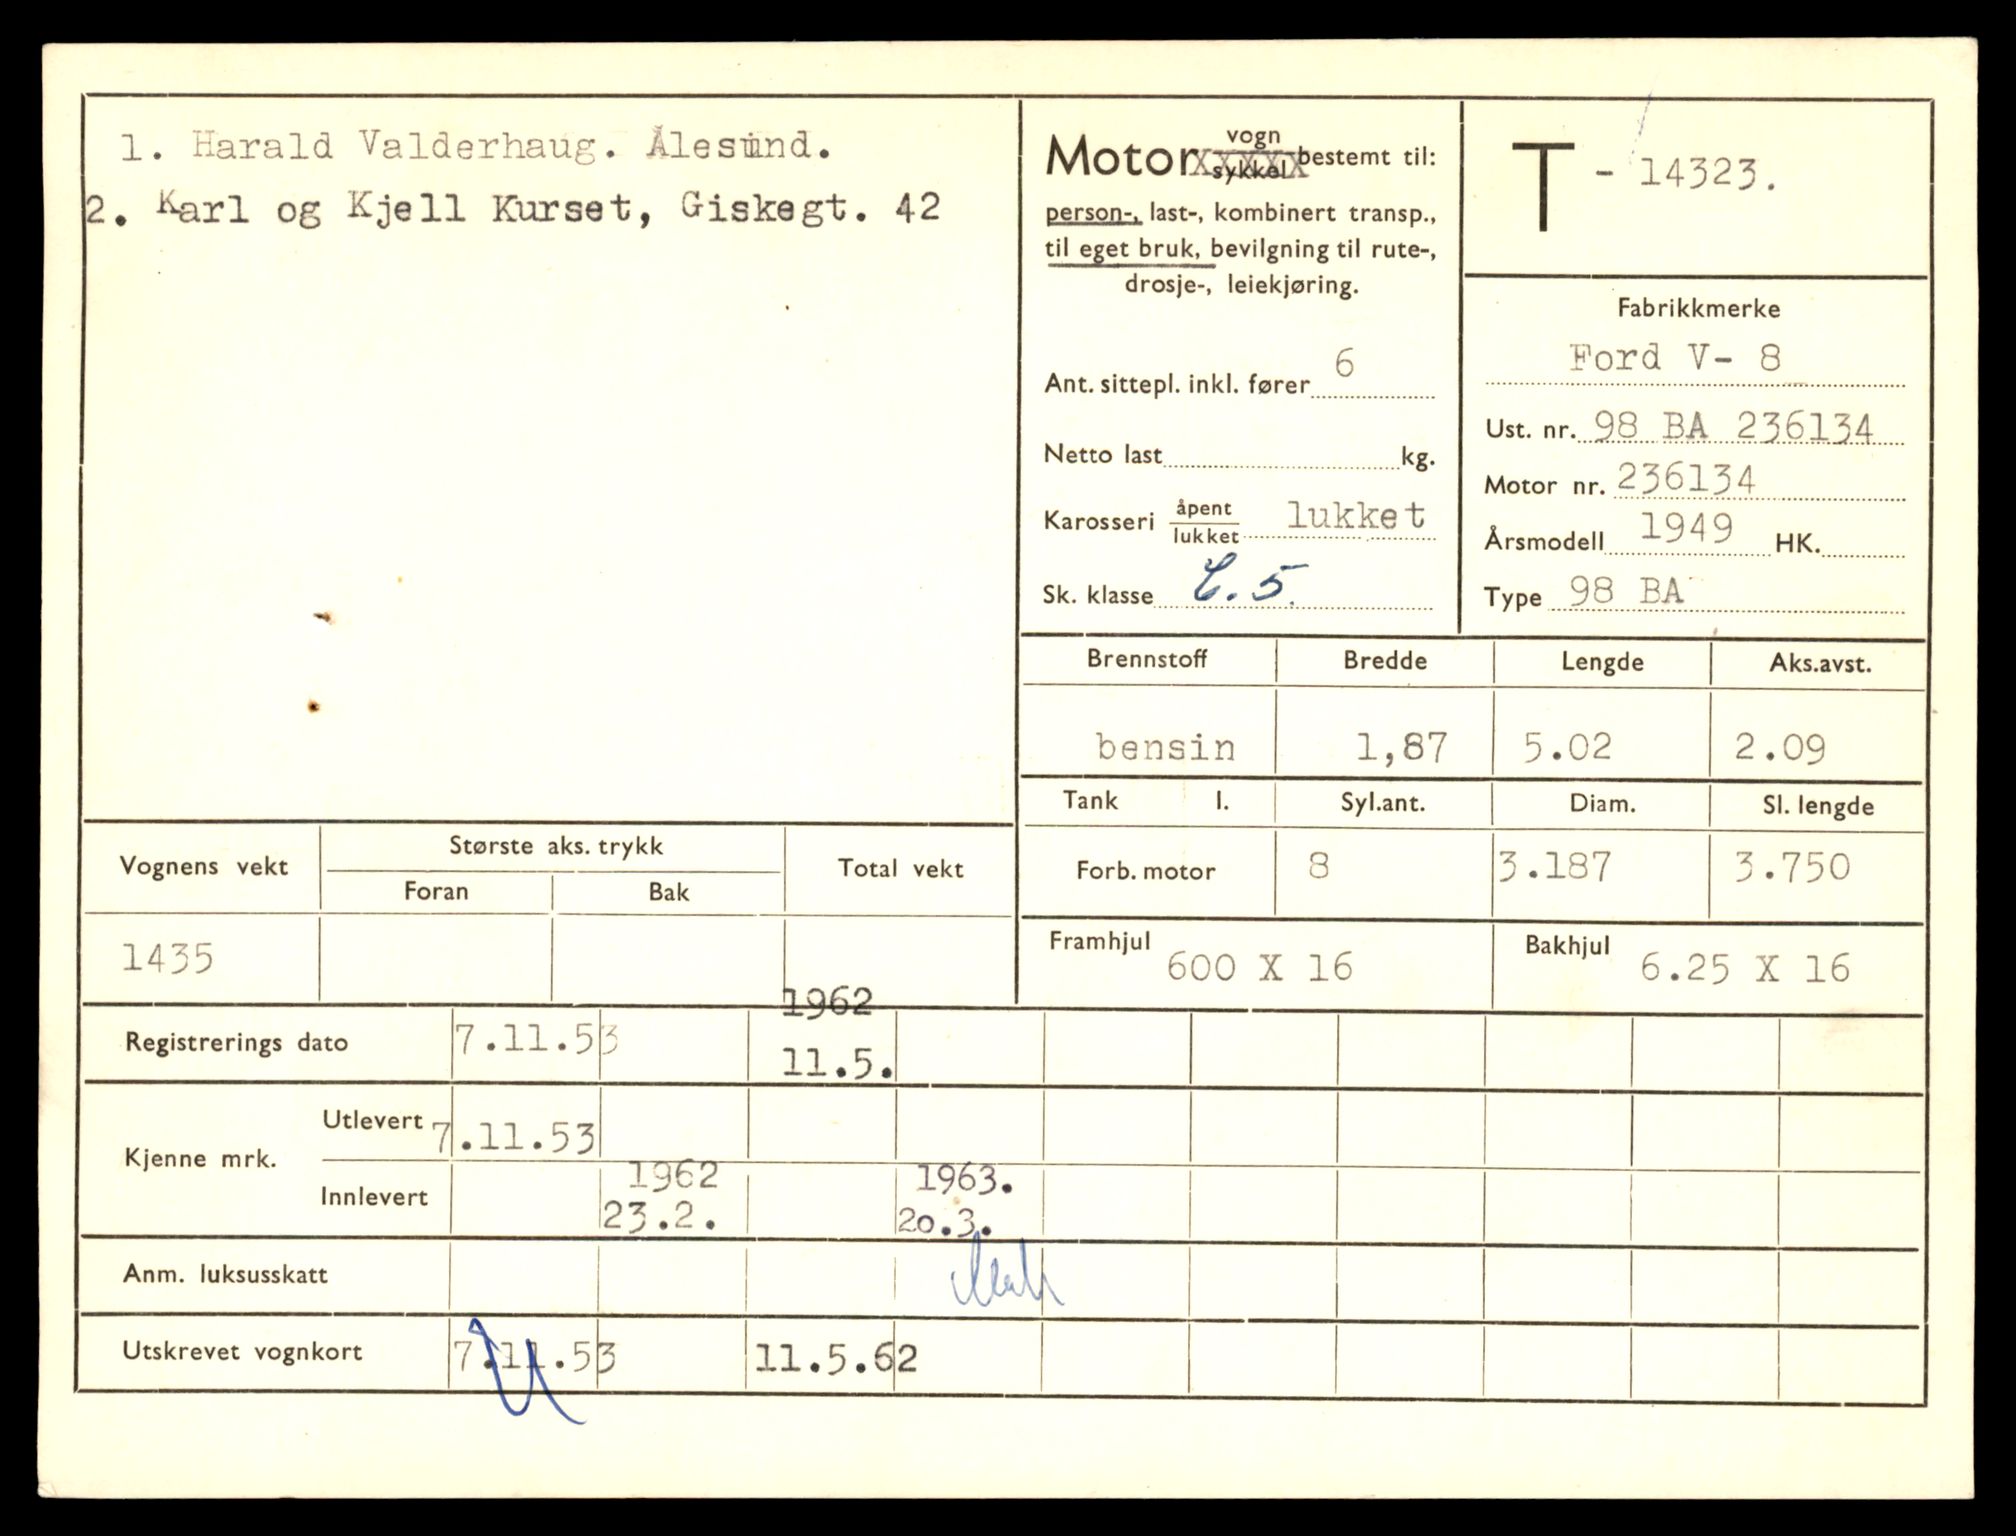 1. Harald Valderhaug. Ålesund.
2. Karl og Kjell Kurset, Giskegt. 42
Motor vogn
sykkel bestemt til:
person-, last-, kombinert transp.,
til eget bruk, bevilgning til rute-,
drosje-, leiekjøring.
Ant. sittepl. inkl. fører 6
Netto last kg.
Karosseri åpent
lukket lukket
Sk. klasse C. 5.
T - 14323.
Fabrikkmerke
Ford V- 8
Ust. nr. 98 BA 236134
Motor nr. 236134
Årsmodell 1949 HK.
Type 98 BA
Brennstoff Bredde Lengde Aks.avst.
bensin 1,87 5.02 2.09
Tank l. Syl.ant. Diam. Sl. lengde
Forb. motor 8 3.187 3.750
Framhjul 600 X 16 Bakhjul 6.25 X 16
Vognens vekt Største aks. trykk Total vekt
Foran Bak
1435
1962
Registrerings dato 7.11.53 11.5.
Kjenne mrk. Utlevert 7.11.53
1962 1963.
Innlevert 23.2. 20.3.
Anm. luksusskatt
Utskrevet vognkort 7.11.53 11.5.62